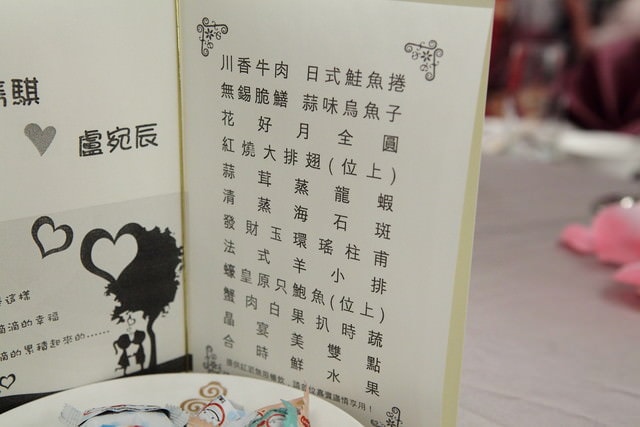 騏
盧宛辰
這樣
滴滴的幸福
滴的累積起來的......
川香牛肉 日式鮭魚捲
無錫脆鱔 蒜味烏魚子
花好月全圓
紅燒大排翅(位上)
蒜茸蒸龍蝦
清蒸海石斑
發財玉環瑤柱甫
法式羊小排
蠔皇原只鮑魚(位上)
蟹肉白果扒時蔬
晶宴美雙點
合時鮮水果
無限暢飲，請各位嘉賓盡情享用！